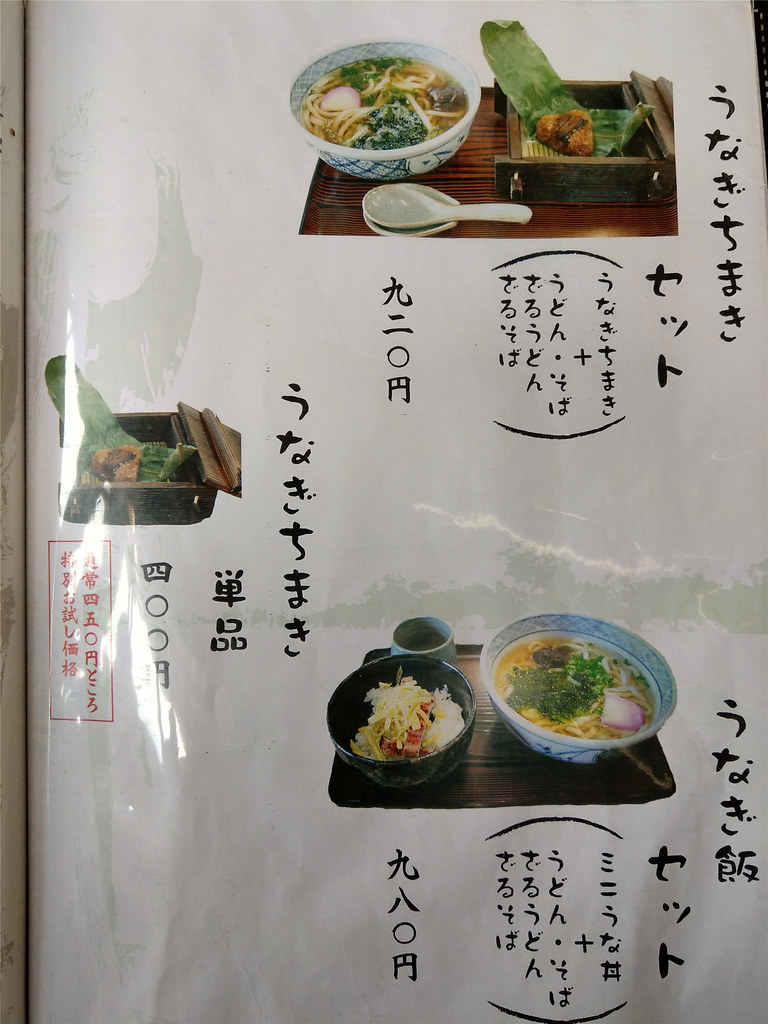 うなぎちまき
セット
うなぎちまき
+
うどん・そば
ざるうどん
ざるそば
九二〇円
うなぎちまき
単品
四〇〇円
通常四五〇円ところ
特別お試し価格
うなぎ飯
セット
ミニうな丼
+
うどん・そば
ざるうどん
ざるそば
九八〇円